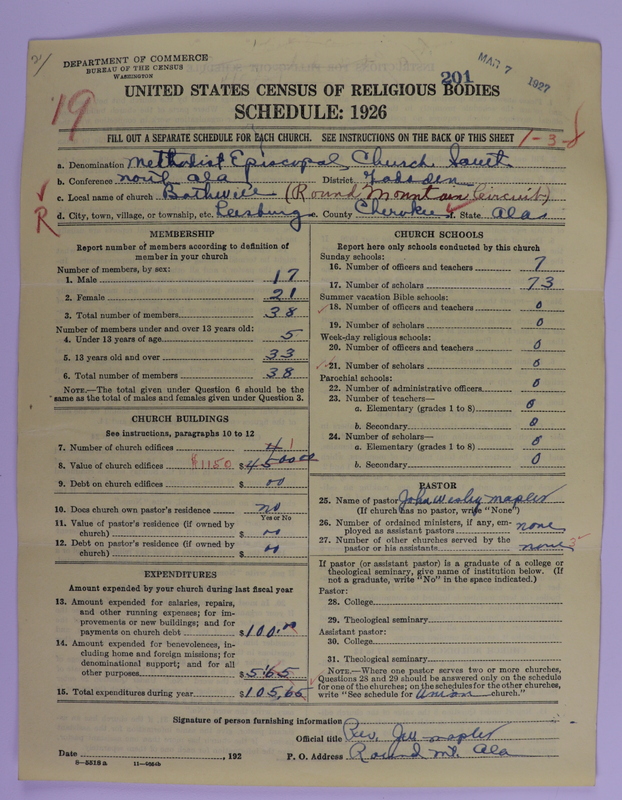 21/
DEPARTMENT OF COMMERCE
BUREAU OF THE CENSUS
WASHINGTON
201
MAR 7 1927
UNITED STATES CENSUS OF RELIGIOUS BODIES
SCHEDULE: 1926
19
FILL OUT A SEPARATE SCHEDULE FOR EACH CHURCH. SEE INSTRUCTIONS ON THE BACK OF THIS SHEET
1-3-8
a. Denomination Methodist Episcopal Church South
b. Conference North Ala District Gadsden
c. Local name of church (Round Mountain Circuit)
R
d. City, town, village, or township, etc. Leesburg e. County Cherokee f. State Ala
MEMBERSHIP
Report number of members according to definition of
member in your church
Number of members, by sex:
1. Male 17
2. Female 21
3. Total number of members 38
Number of members under and over 13 years old:
4. Under 13 years of age 5
5. 13 years old and over 33
6. Total number of members 38
NOTE.—The total given under Question 6 should be the
same as the total of males and females given under Question 3.
CHURCH BUILDINGS
See instructions, paragraphs 10 to 12
7. Number of church edifices 1
8. Value of church edifices $1150 $
9. Debt on church edifices $ 00
10. Does church own pastor's residence no
Yes or No
11. Value of pastor's residence (if owned by
church) $ 00
12. Debt on pastor's residence (if owned by
church) $ 00
EXPENDITURES
Amount expended by your church during last fiscal year
13. Amount expended for salaries, repairs,
and other running expenses; for im-
provements or new buildings; and for
payments on church debt $ 100.00
14. Amount expended for benevolences, in-
cluding home and foreign missions; for
denominational support; and for all
other purposes $ 5.65
15. Total expenditures during year $ 105,65
CHURCH SCHOOLS
Report here only schools conducted by this church
Sunday schools:
16. Number of officers and teachers 7
17. Number of scholars 73
Summer vacation Bible schools:
18. Number of officers and teachers 0
19. Number of scholars 0
Week-day religious schools:
20. Number of officers and teachers 0
21. Number of scholars 0
Parochial schools:
22. Number of administrative officers 0
23. Number of teachers—
a. Elementary (grades 1 to 8) 0
b. Secondary 0
24. Number of scholars—
a. Elementary (grades 1 to 8) 0
b. Secondary 0
PASTOR
25. Name of pastor John Wesley Maples
(If church has no pastor, write "None")
26. Number of ordained ministers, if any, em-
ployed as assistant pastors none
27. Number of other churches served by the
pastor or his assistants none 5
If pastor (or assistant pastor) is a graduate of a college or
theological seminary, give name of institution below. (If
not a graduate, write "No" in the space indicated.)
Pastor:
28. College
29. Theological seminary
Assistant pastor:
30. College
31. Theological seminary
NOTE.—Where one pastor serves two or more churches,
Questions 28 and 29 should be answered only on the schedule
for one of the churches; on the schedules for the other churches,
write "See schedule for Union church."
Signature of person furnishing information
Official title Rev. J W Maples
Date , 192 P. O. Address Round Mt. Ala
8—5518 a